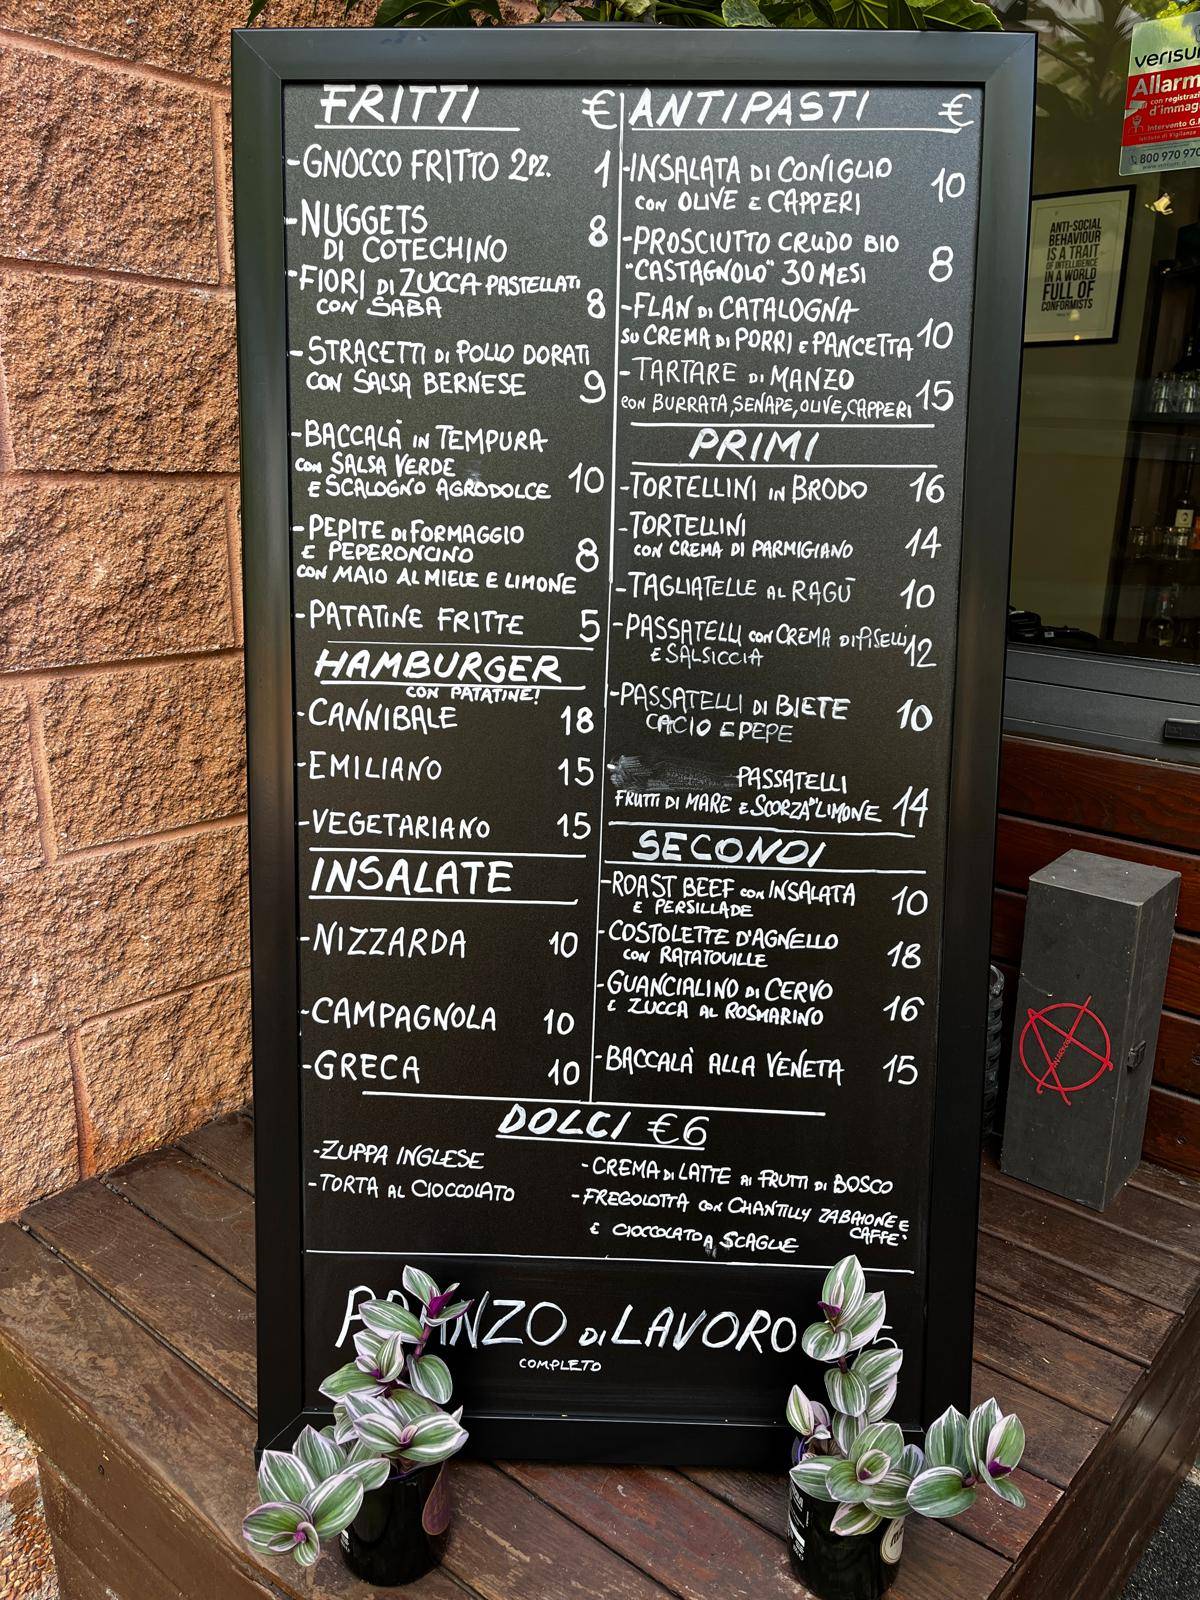 FRITTI €
-GNOCCO FRITTO 2PZ. 1
-NUGGETS
DI COTECHINO 8
-FIORI DI ZUCCA PASTELLATI
CON SABA 8
-STRACETTI DI POLLO DORATI
CON SALSA BERNESE 9
-BACCALÀ IN TEMPURA
CON SALSA VERDE
E SCALOGNO AGRODOLCE 10
-PEPITE DI FORMAGGIO
E PEPERONCINO
CON MAIO AL MIELE E LIMONE 8
-PATATINE FRITTE 5
HAMBURGER
CON PATATINE!
-CANNIBALE 18
-EMILIANO 15
-VEGETARIANO 15
INSALATE
-NIZZARDA 10
-CAMPAGNOLA 10
-GRECA 10
ANTIPASTI €
-INSALATA DI CONIGLIO
CON OLIVE E CAPPERI 10
-PROSCIUTTO CRUDO BIO
"CASTAGNOLO" 30 MESI 8
-FLAN DI CATALOGNA
SU CREMA DI PORRI E PANCETTA 10
-TARTARE DI MANZO
CON BURRATA, SENAPE, OLIVE, CAPPERI 15
PRIMI
-TORTELLINI IN BRODO 16
-TORTELLINI
CON CREMA DI PARMIGIANO 14
-TAGLIATELLE AL RAGÙ 10
-PASSATELLI CON CREMA DI PISELLI
E SALSICCIA 12
-PASSATELLI DI BIETE
CACIO E PEPE 10
- PASSATELLI
FRUTTI DI MARE E SCORZA LIMONE 14
SECONDI
-ROAST BEEF CON INSALATA
E PERSILLADE 10
-COSTOLETTE D'AGNELLO
CON RATATOUILLE 18
-GUANCIALINO DI CERVO
E ZUCCA AL ROSMARINO 16
-BACCALÀ ALLA VENETA 15
DOLCI €6
-ZUPPA INGLESE
-TORTA AL CIOCCOLATO
-CREMA DI LATTE AI FRUTTI DI BOSCO
-FREGOLOTTA CON CHANTILLY ZABAIONE E
CAFFE'
E CIOCCOLATO A SCAGLIE
DI LAVORO
COMPLETO
verisu
Allarm
con registrazi
d'immag
Intervento G.
Istituto di Vigilanza
800 970 970
ANTI-SOCIAL
BEHAVIOUR
IS A TRAIT
OF INTELLIGENCE
IN A WORLD
FULL OF
CONFORMISTS